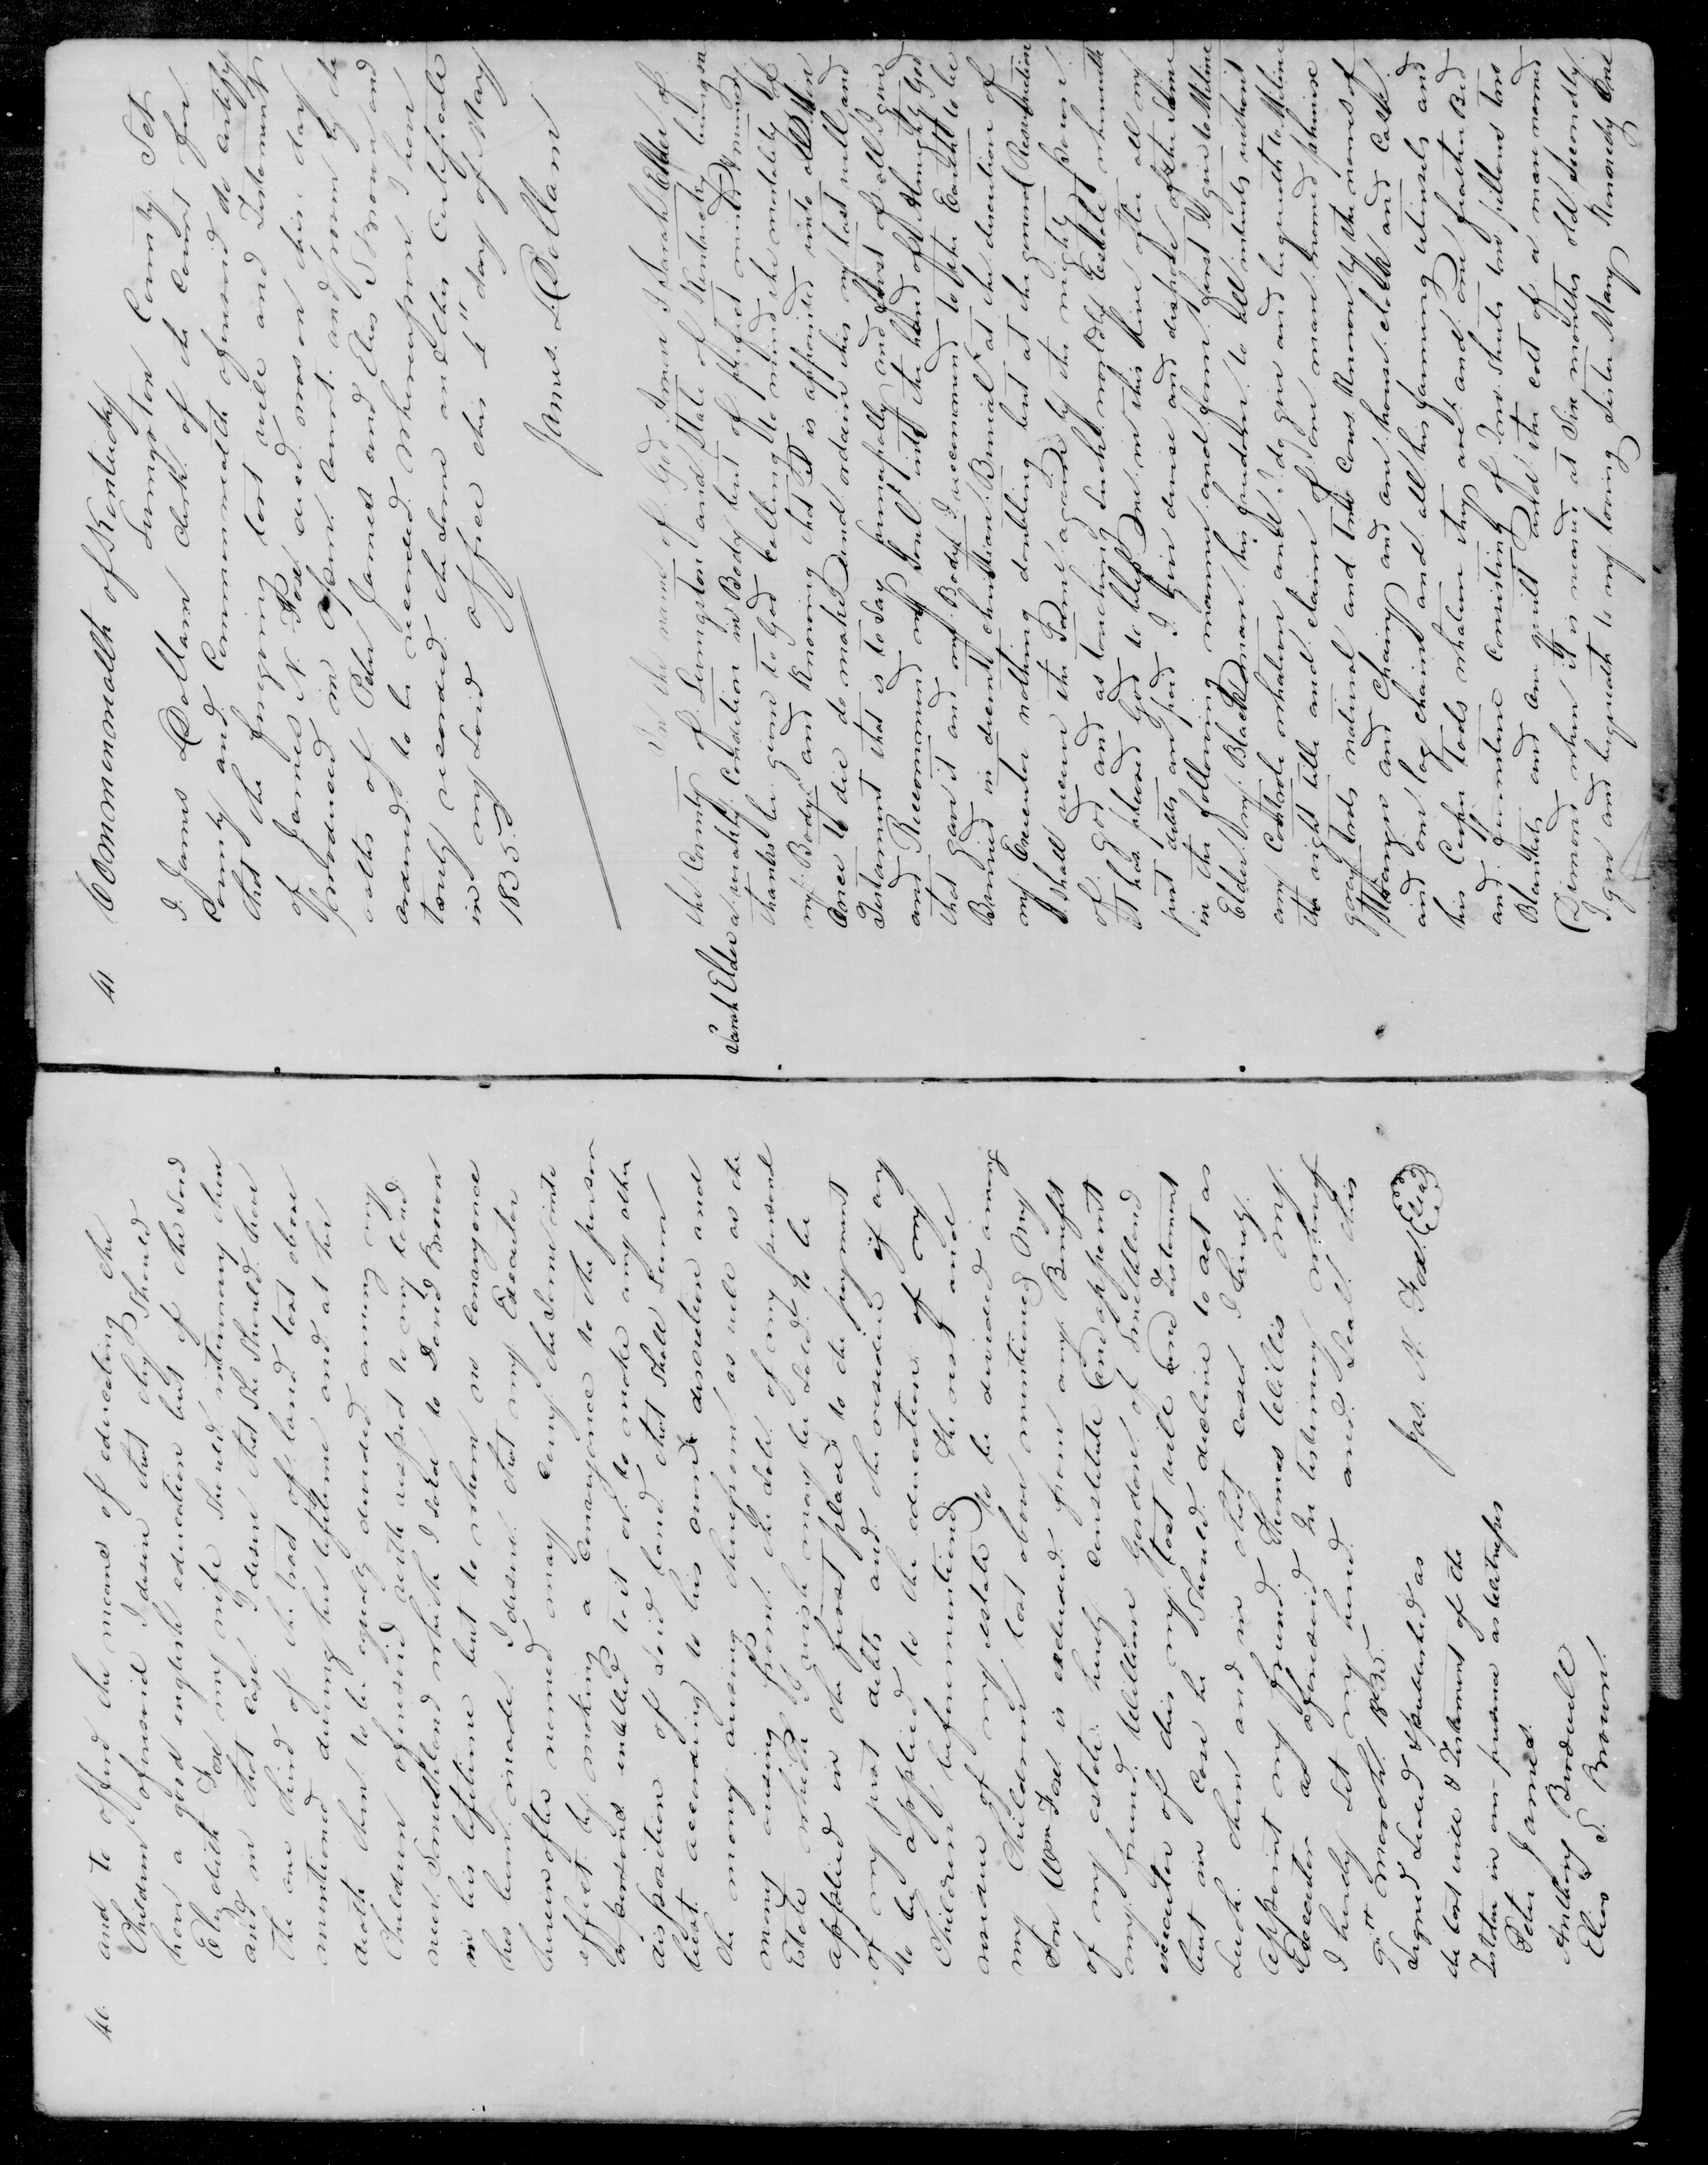 40.
and to afford the means of educating the
Children aforesaid I desire that they should
have a good english education but if the said
Elizabeth Fox my wife should intermarry then
and in that case I desire that she should have
the one third of the tract of land last above
mentioned during her lifetime and at her
death them to be equally devided among my
Children aforesaid with respect to my land
near Smithland which I sold to David Brown
in his lifetime but to whom no conveyance
has been made I desire that my Executor
herein after named may carry the same into
effect by making a conveyance to the person
or persons entitled to it or to make any other
disposition of said land that shall seem
best according to his own discretion and
the money arising therefrom as well as the
money arising from the sale of my personal
Estate which I wish may be sold to be
applied in the first place to the payment
of my just debts and the residue if any
to be applied to the education of my
Children beforementioned the rest and
residue of my estate to be devided among
my Children last above mentioned My
Son Wm Fox is excluded from any Benefit
of my estate. I hereby constitute and appoint
my friend William Gordon of Smithland
executor of this my last will and Testament
but in case he should decline to act as
such then and in that case I hereby
appoint my friend Thomas Willis my
Executor as aforesaid In testimony whereof
I hereby set my hand and seal this
9th March 1835
Signed Sealed & published as
the last will & Testament of the
Testator in our presence as Witnesses
Jas. N. Fox Seal
Peter James
Anthony Birdwell
Elias S. Brown.
41
Commonwealth of Kentucky
Livingston County Sct
I James L Dallam Clerk of the Court for
County and Commonwealth aforesaid do certify
that the foregoing last will and Testament
of James N. Fox deceased was on this day
produced in open Court and proven by the
oaths of Peter James and Elias S Brown and
ordered to be recorded whereupon I have
truly recorded the same and this Certificate
in my said office this 4" day of May
1835
James L Dallam
Sarah Elder
In the name of God Amen I Sarah Elder of
the County of Livingston and State of Kentucky being in
a weakly Condition in Body but of perfect mind & memory
thanks be given to God calling to mind the mortality of
my Body and knowing that it is appointed unto all Men
Once to die do make and ordain this my last will and
Testament that is to say principally and first of all I give
and Recommend my Soul into the hand of Almighty God
that gave it and my Body I recommend to the Earth to be
Buried in decent christian Burial at the discretion of
my Executor nothing doubting but at the general Resurrection
I shall receive the Same again by the mighty power
of God and as touching such worldly Estate wherewith
it has pleased God to bless me in this life after all my
just debts are paid I give devise and dispose of the Same
in the following manner and form first I give to Milina
Elder my Black man his freedom to all intents without
any Controle whatever and I do give and bequeath to Milina
the right title and claim of one mare named phenixe
gray trots natural and two Cows known by the names of
Stranger and Chany and one house clock and Cattle
and one log chain and all his farming utensils and
his Cooper tools whatever they are and one feather Bed
and furniture Consisting of Two Sheets two pillows two
Blankets and one quilt and the colt of a mare named
Dimond when it is weaned at Six months old Secondly
I give and bequeath to my loving Sister Mary Kennedy One